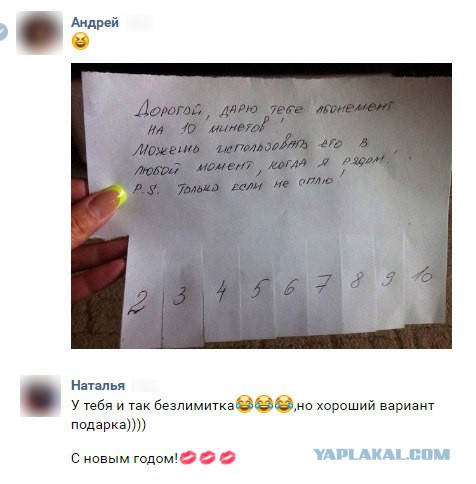 Андрей
Дорогой, дарю тебе абонемент
на 10 минетов!
Можешь использовать его в
любой момент, когда я рядом!
P.S. Только если не сплю!
2 3 4 5 6 7 8 9 10
Наталья
У тебя и так безлимитка😂😂😂,но хороший вариант
подарка))))
С новым годом!💋💋💋
YAPLAKAL.COM